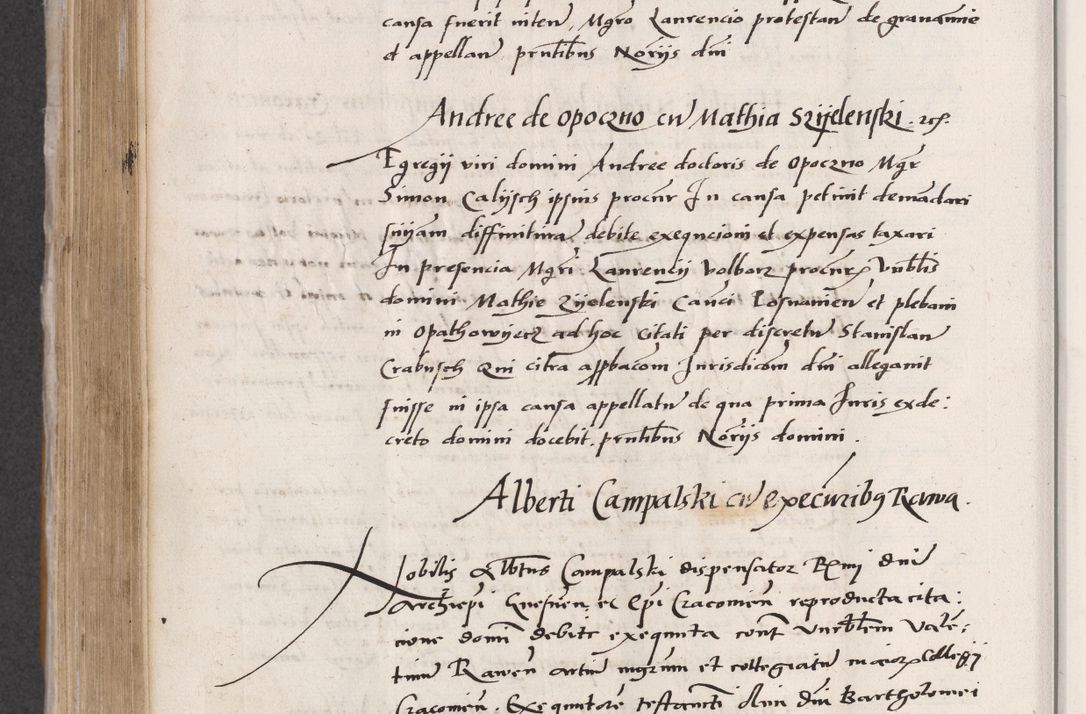 causa fuerit inten Mgro Laurencio protestan de grauamine
et appellan pntibus Noriis dni
Andree de Opoczno cu Mathia Szyelenski rcs.
Egregij viri domini Andree doctoris de Opoczno Mgr
Simon Calijsch ipsius procur In causa petiuit demadari
snijam diffinitiua debite exequcioni et expensas taxari
In presencia Mgri Laurencij Volborz procur Unblis
domini Mathie Zyelenski Canci Posnanien et plebani
in Opathowyecz ad hoc Citati per discretu Stanislau
Crabusch Qui citra appbacom Jurisdicom dni allegauit
fuisse in ipsa causa appellatu de qua prima Juris ex de:
creto domini docebit. pntibus Noriis domini .
Alberti Campalski cu executoribus Rawa.
Nobilis Albtus Campalski dispensator Rmi dni
Archiepi Gnesnen ec Epi Cracouien reproducta cita:
cione domi debite exequuta cont Unrblem Vale:
tinu Rawen artiu mgrum et collegiatu maior Collegij
Cracouien. Exequutore testamti olim dni Bartholomei